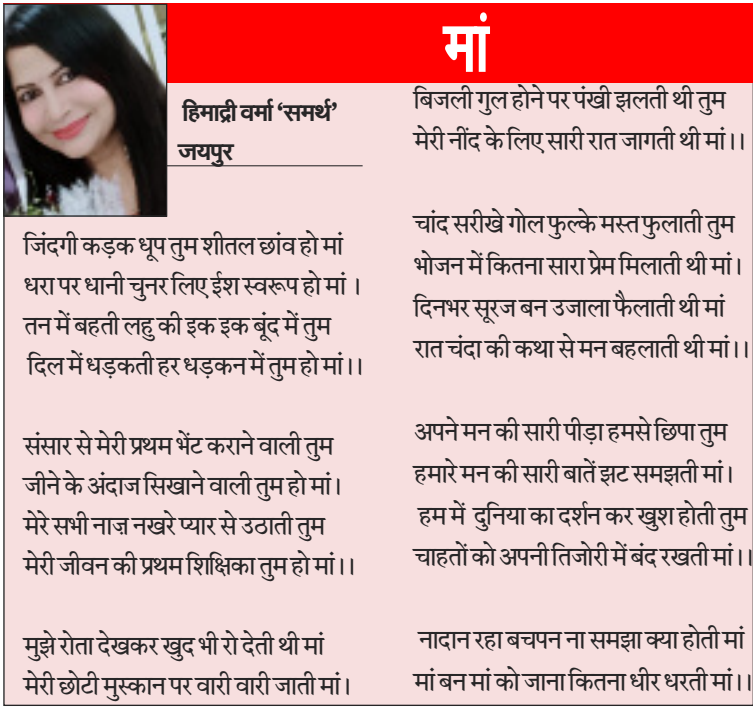 मां
हिमाद्री वर्मा ‘समर्थ’
जयपुर
जिंदगी कड़क धूप तुम शीतल छांव हो मां
धरा पर धानी चुनर लिए ईश स्वरूप हो मां ।
तन में बहती लहु की इक इक बूंद में तुम
दिल में धड़कती हर धड़कन में तुम हो मां।।
संसार से मेरी प्रथम भेंट कराने वाली तुम
जीने के अंदाज सिखाने वाली तुम हो मां।
मेरे सभी नाज़ नखरे प्यार से उठाती तुम
मेरी जीवन की प्रथम शिक्षिका तुम हो मां।।
मुझे रोता देखकर खुद भी रो देती थी मां
मेरी छोटी मुस्कान पर वारी वारी जाती मां।
बिजली गुल होने पर पंखी झलती थी तुम
मेरी नींद के लिए सारी रात जागती थी मां।।
चांद सरीखे गोल फुल्के मस्त फुलाती तुम
भोजन में कितना सारा प्रेम मिलाती थी मां।
दिनभर सूरज बन उजाला फैलाती थी मां
रात चंदा की कथा से मन बहलाती थी मां।।
अपने मन की सारी पीड़ा हमसे छिपा तुम
हमारे मन की सारी बातें झट समझती मां।
हम में दुनिया का दर्शन कर खुश होती तुम
चाहतों को अपनी तिजोरी में बंद रखती मां।।
नादान रहा बचपन ना समझा क्या होती मां
मां बन मां को जाना कितना धीर धरती मां।।